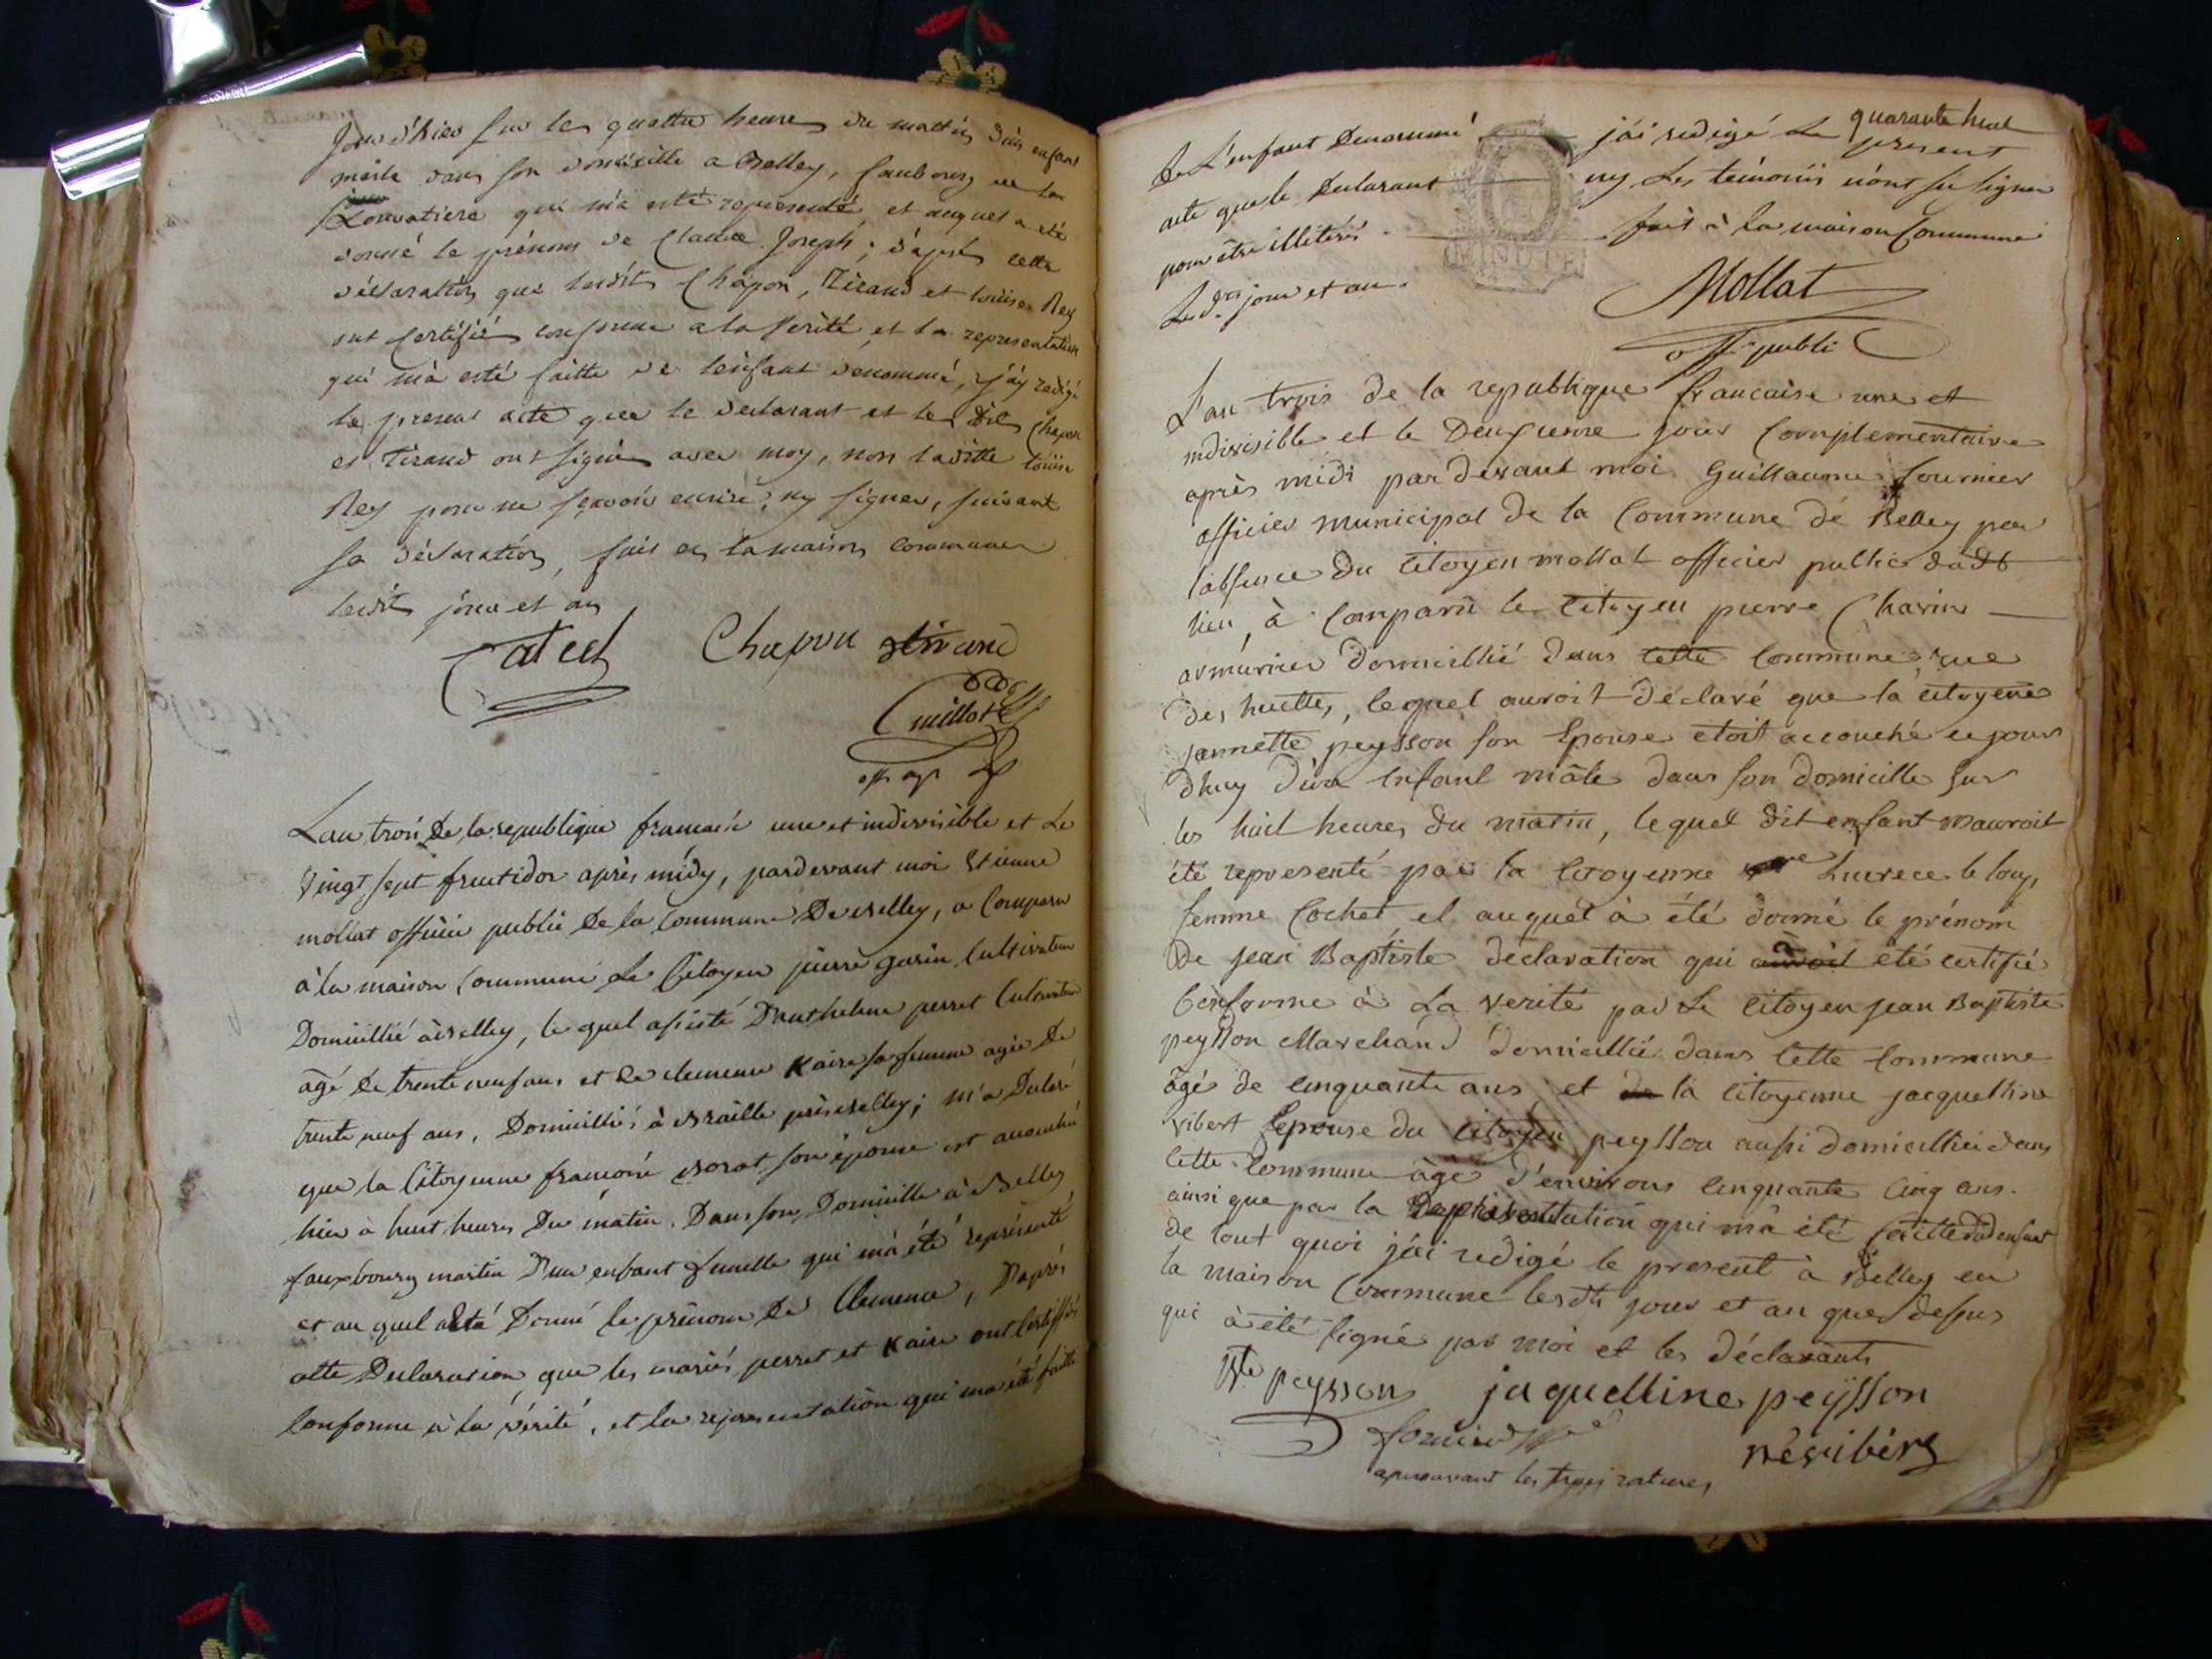 Jour d'hier sur les quattre heures du mattin d'un enfant
masle dans son domicille a Belley, faubourg de la
Louvatiere qui m'a esté representé, et auquel a eté
donné le prénom de Claude Joseph ; d'apres cette
déclaration que lesdits Chapon, Tirand et louise Rey
ont certifié conforme a la verité, et la representation
qui m'a esté faitte de l'enfant denommé, j'ay redigé
le present acte que le declarant et les dits Chapon
et Tirand ont signés avec moy, non laditte louise
Rey pour ne sçavoir ecrire, ny signer, suivant
sa déclaration, fait en la maison commune
lesdits jour et an
Catet Chapon tirand
Cuillot
off
L'an trois De la republique francaise une et indivisible et Le
vingt sept fructidor après midy, pardevant moi Etienne
mollat officier public De la Commune De Belley, a Comparu
à la maison Commune Le Citoyen pierre garin Cultivateur
Domicillié à Belley, le quel assisté D'anthelme perret Cultivateur
agé De trente neuf ans et De clemence Kaire sa femme agée De
trente neuf ans, Domicilliés à Braille près Belley ; m'a Declaré
que la Citoyenne francoise Borat son épouse est accouchée
hier à huit heures Du matin, Dans son Domicille à Belley
fauxbourg martin D'un enfant femelle qui m'a été représenté
et au quel a été Donné le prénom De Clemence, D'après
cette Declaration que les mariés perret et Kaire ont certiffié
Conforme à la vérité, et la representation qui m'a été faite
quarante huit
De L'enfant Denommé j'ai redigé Le present
acte que le Declarant ny Les témoins n'ont su signer
pour être illiterés fait à la maison Commune
Les dits jour et an.
MINUTE
Mollat
off public
L'an trois de la republique francaise une et
indivisible et le Deuxieme jour Complementaire
après midi par devant moi Guillaume fournier
officier municipal de la Commune de Belley par
l'absence du Citoyen mollat officier public dudt
lieu, à Comparu le Citoyen pierre Charin
armurier domicillié dans cette Commune rue
des huittes, lequel auroit déclaré que la citoyene
jannette peysson son Epouse etoit accouché ce jour
dhuy d'un Enfant mâle dans son domicille sur
les huit heures du matin, lequel dit enfant m'auroit
été representé par la Citoyenne Lucrece le loup,
femme Cochet et auquel à été donné le prénom
de jean Baptiste déclaration qui à été certifié
Conforme à La verité par Le Citoyen jean Baptiste
peysson Marchand domicillié dans cette Commune
âgé de cinquante ans et la Citoyenne jacquelline
vibert Epouse du Citoyen peysson aussi domicilliée dans
cette Commune âgé d'environs cinquante cinq ans.
ainsi que par la representation qui m'à été faitte dud enfant
de tout quoi j'ai redigé le present à Belley en
la maison Commune lesdts jour et an que dessus
qui à été signé par moi et les déclarants
Bte peysson jaquelline peysson
fournier néevibert
aprouvant les trois ratures